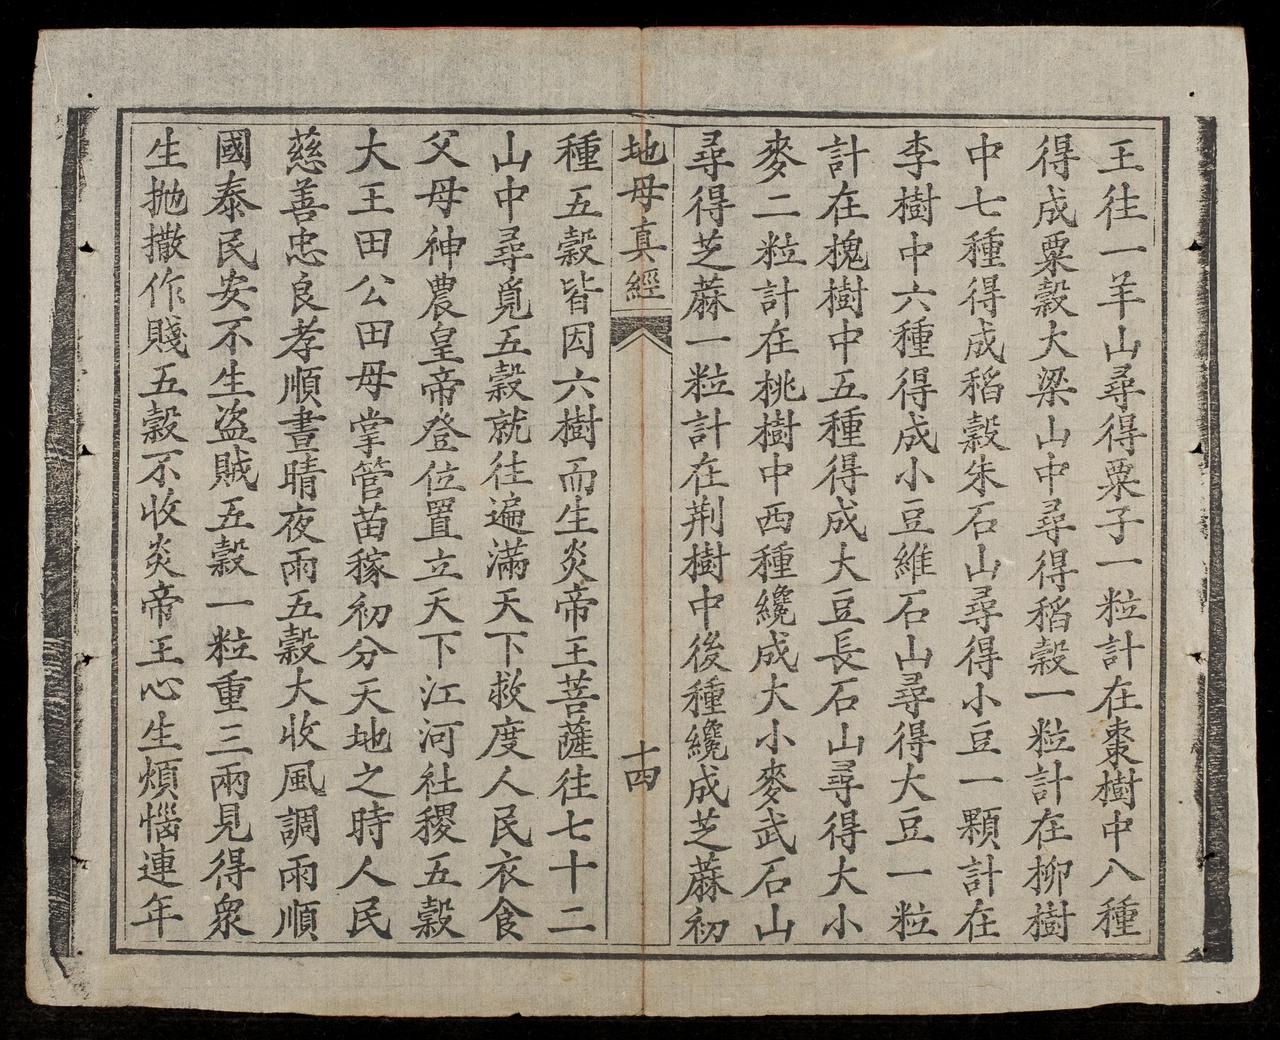 王往一羊山尋得粟子一粒計在棗樹中八種
得成粟穀大梁山中尋得稻穀一粒計在柳樹
中七種得成稻穀朱石山尋得小豆一顆計在
李樹中六種得成小豆維石山尋得大豆一粒
計在槐樹中五種得成大豆長石山尋得大小
麥二粒計在桃樹中西種纔成大小麥武石山
尋得芝蔴一粒計在荆樹中後種纔成芝蔴初
地母真經
十四
種五穀皆因六樹而生炎帝王菩薩往七十二
山中尋覓五穀就往遍滿天下救度人民衣食
父母神農皇帝登位置立天下江河社稷五穀
大王田公田母掌管苗稼初分天地之時人民
慈善忠良孝順晝晴夜雨五穀大收風調雨順
國泰民安不生盜賊五穀一粒重三兩見得衆
生拋撒作賤五穀不收炎帝王心生煩惱連年